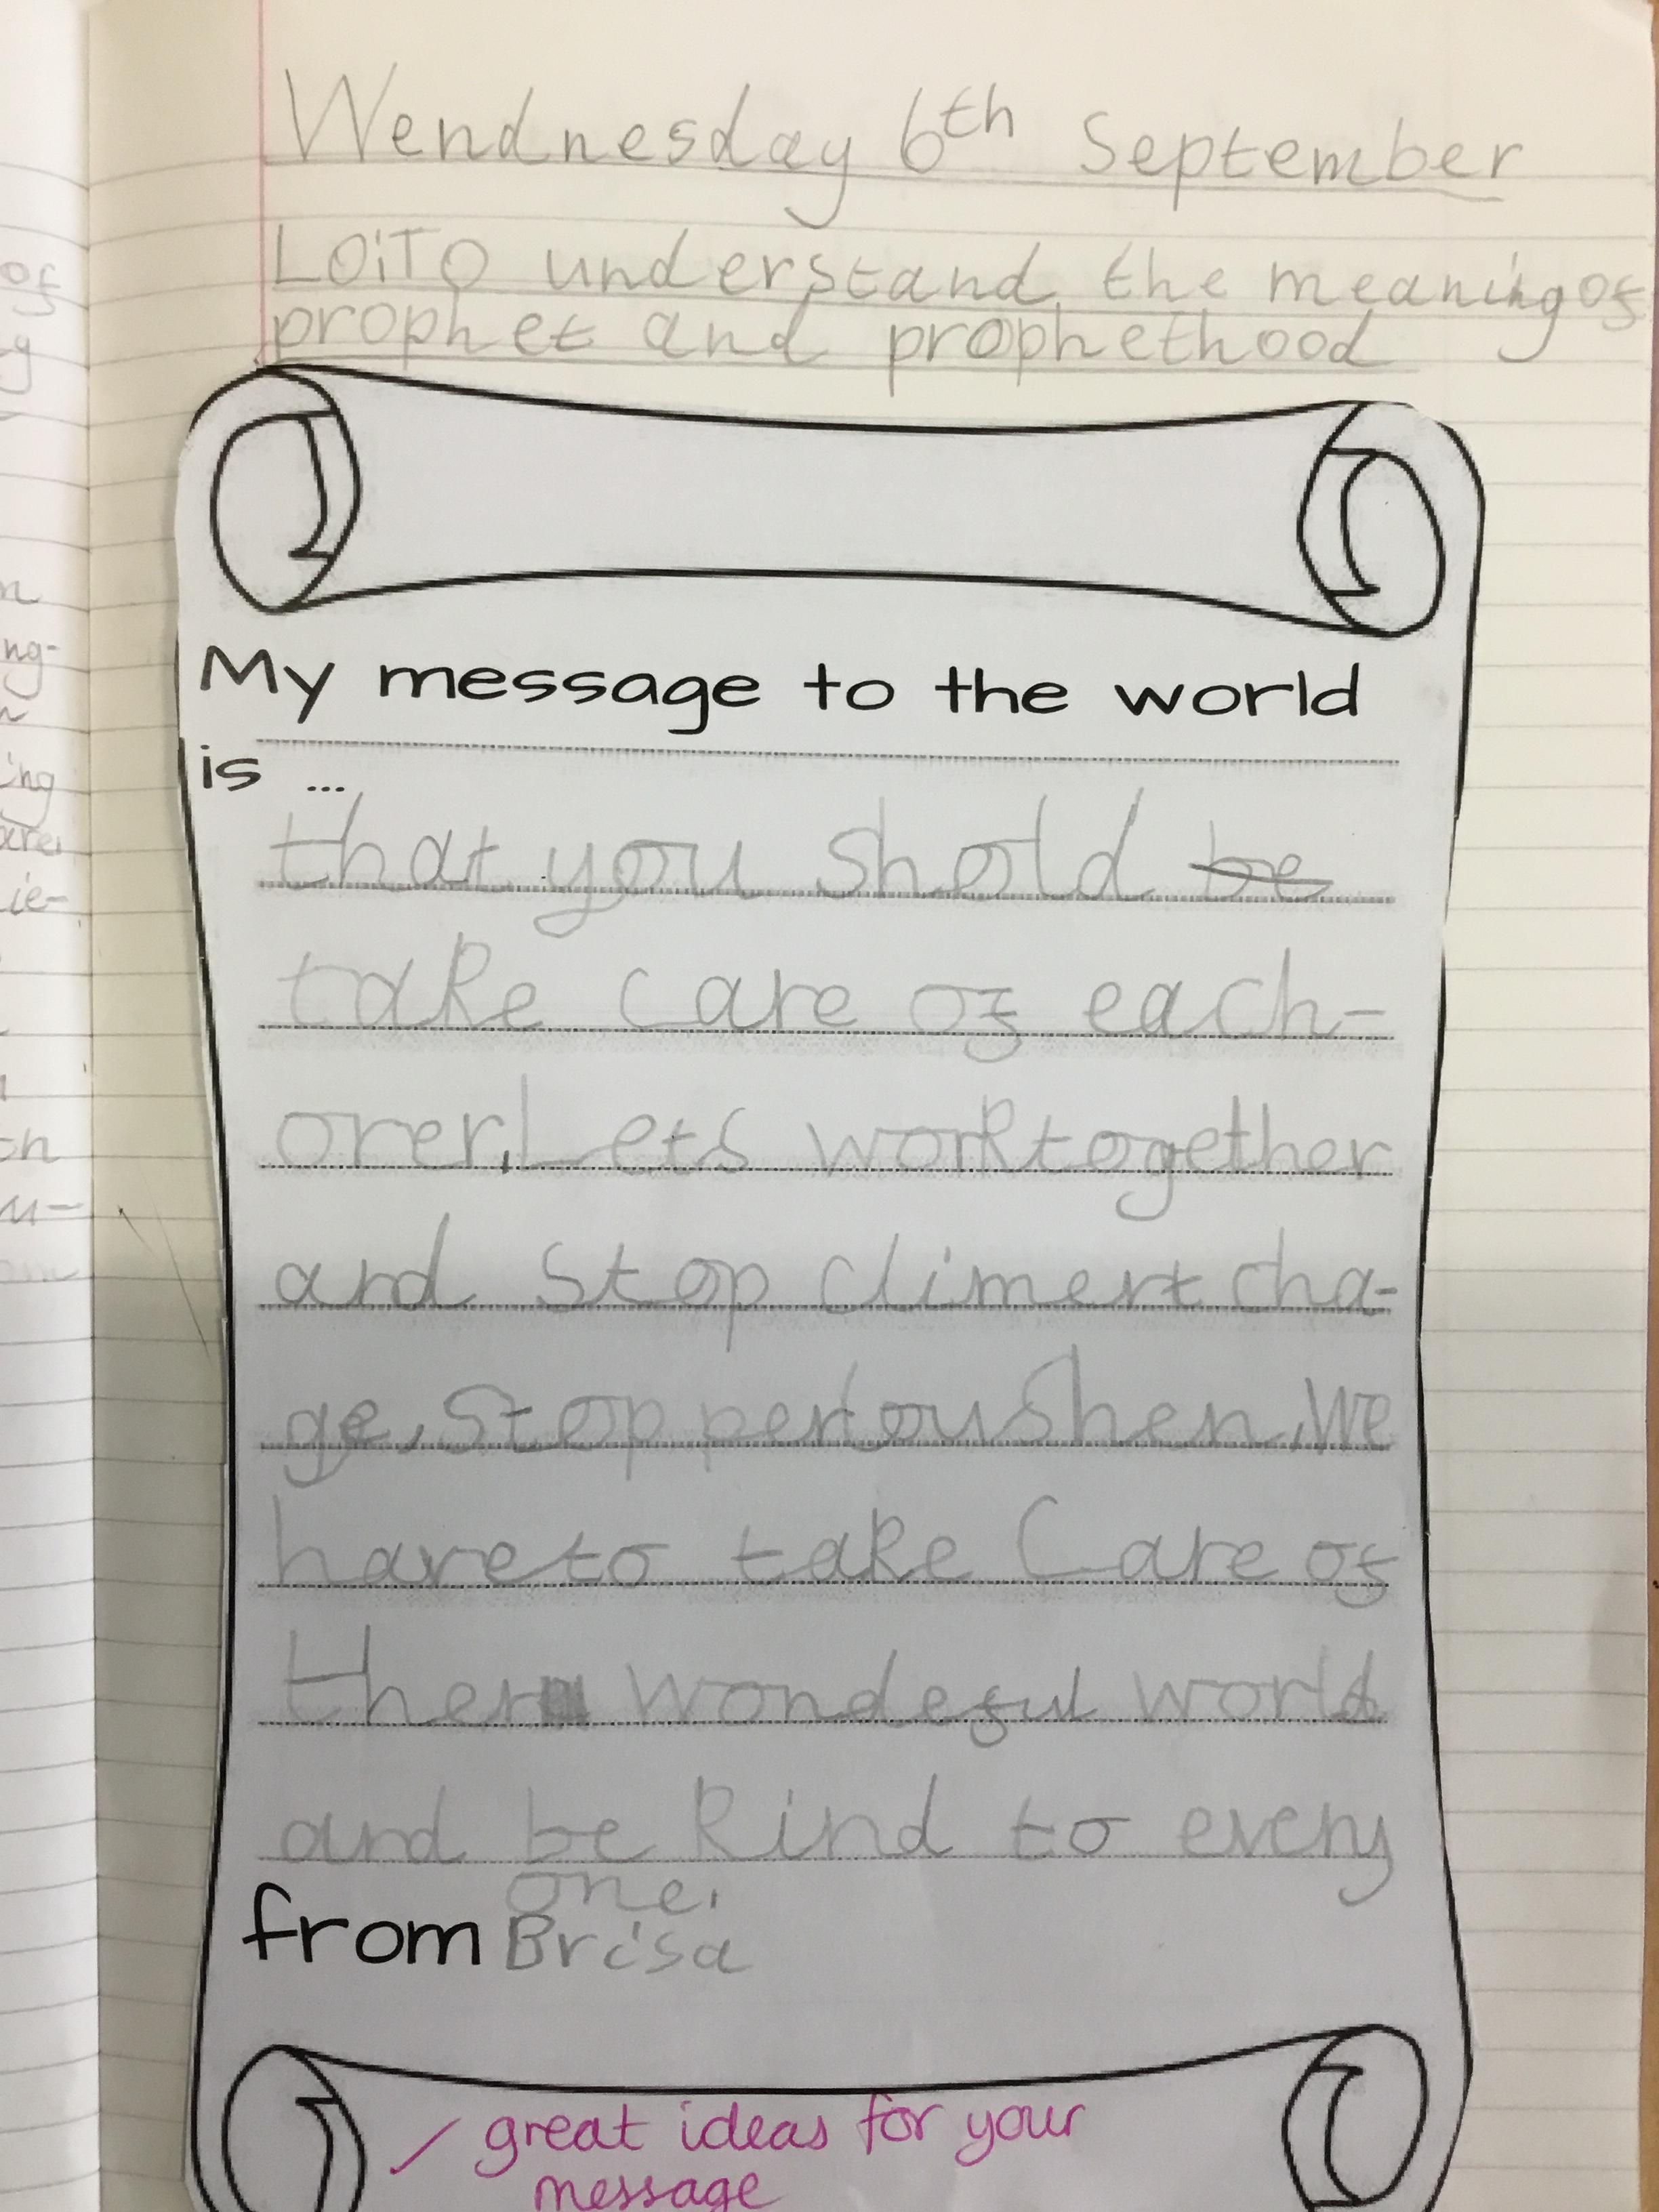 Wendnesday 6th September
LO:TO understand the meaning of
prophet and prophethood
My message to the world
is ...
that you shold be
take care of each-
over, Lets work together
and stop climert cha-
ge, Stop perloushen, We
have to take Care of
ther wondeful world
and be kind to every
one.
from Brisa
great ideas for your
message